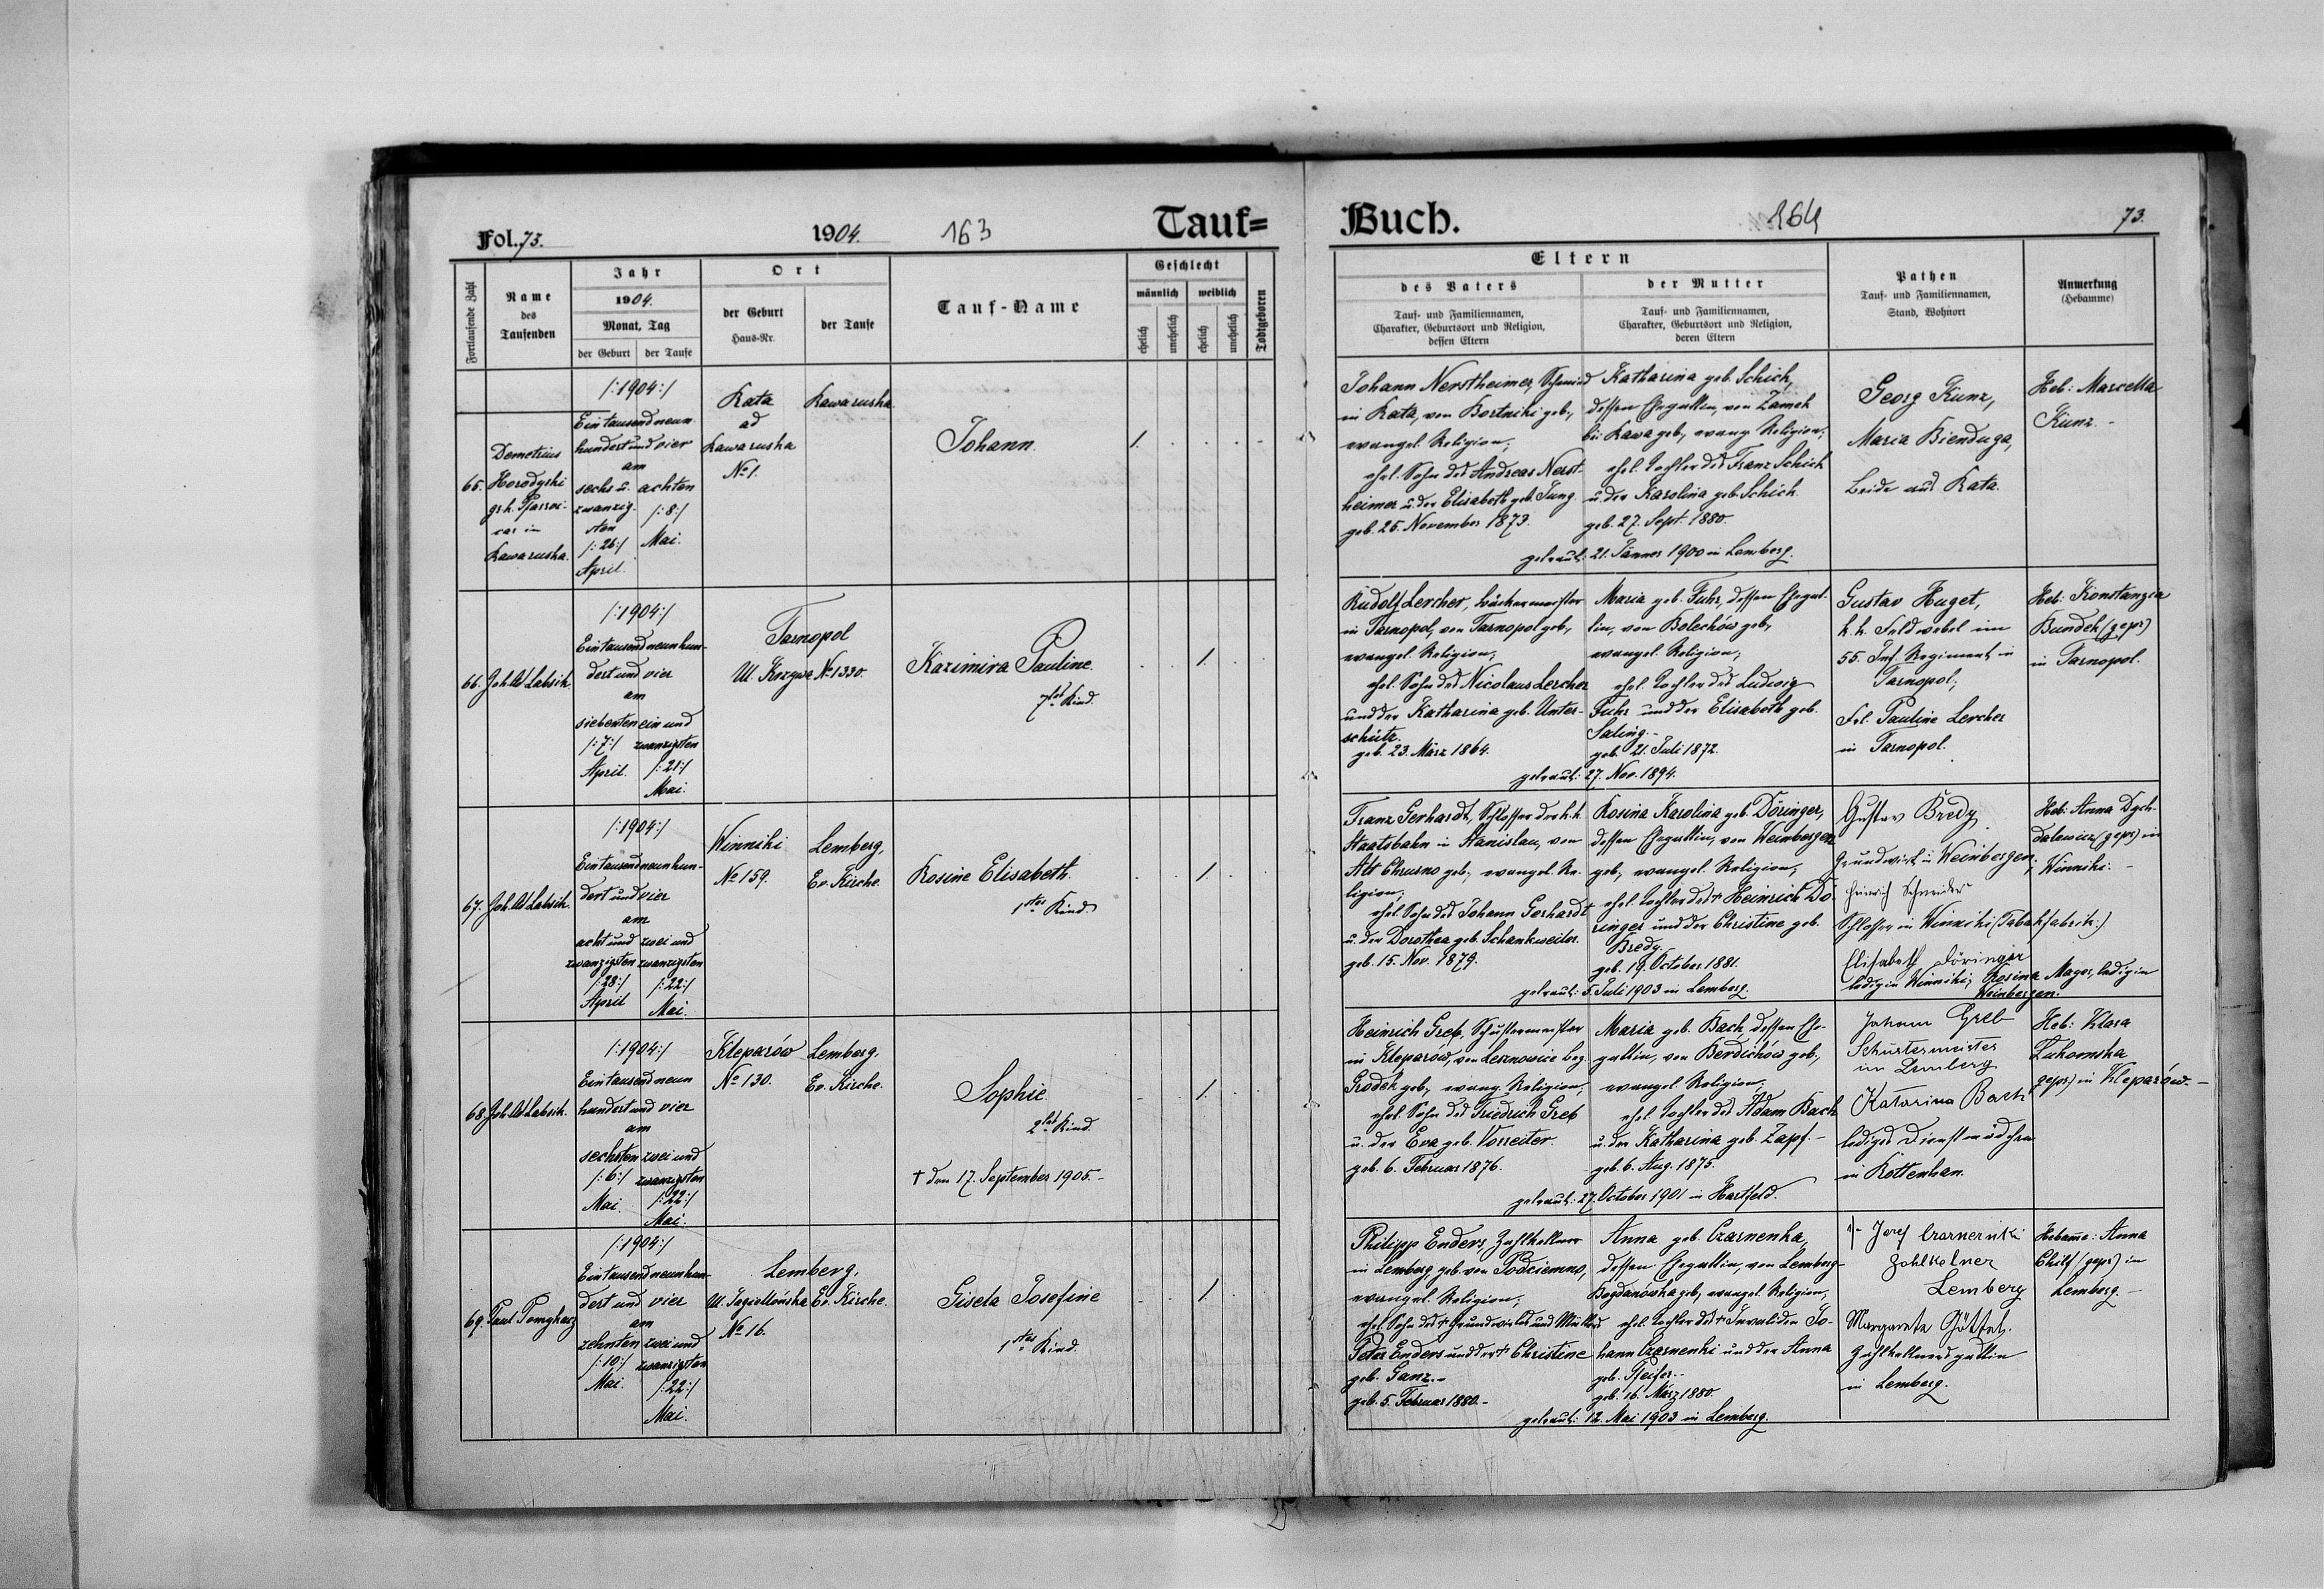 Fol. 73.
1904.
163
Tauf=
Fortlaufende Zahl
Name
des
Taufenden
Jahr
1904.
Monat, Tag
der Geburt
der Taufe
Ort
der Geburt
Haus-Nr.
der Taufe
Tauf-Name
Geschlecht
männlich
weiblich
ehelich
unehelich
ehelich
unehelich
Todtgeboren
65.
Demetrius
Horodyski
gr. k. Pfarrvi-
car in
Rawaruska.
/:1904:/
Eintausendneun
hundert und vier
am
sechs u. achten
zwanzig- /:8:/
sten Mai.
/:26:/
April.
Kata
ad
Rawaruska
No 1.
Rawaruska
Johann.
1.
66.
/:1904:/
Eintausendneunhun-
dert und vier
am
siebenten ein und
/:7:/ zwanzigsten
April. /:21:/
Mai.
Tarnopol
Ul. Krzywa No 1330.
Kazimira Pauline.
7tes Kind.
1.
67.
/:1904:/
Eintausendneunhun-
dert und vier
am
acht und zwei und
zwanzigsten zwanzigsten
/:28:/ /:22:/
April Mai.
Winniki
No 159.
Lemberg,
Ev. Kirche.
Rosine Elisabeth.
1stes Kind.
1.
68.
/:1904:/
Eintausendneun
hundert und vier
am
sechsten zwei und
/:6:/ zwanzigsten
Mai. /:22:/
Mai.
Kleparów
No 130.
Lemberg,
Ev. Kirche.
Sophie.
2tes Kind.
† den 17. September 1905.-
1.
69.
Paul
/:1904:/
Eintausendneunhun-
dert und vier
am
zehnten zwei und
/:10:/ zwanzigsten
Mai. /:22:/
Mai.
Lemberg,
Ul. Jagiellońska Ev. Kirche.
No 16.
Gisela Josefine
1stes Kind.
1.
Buch.
164
73.
Eltern
des Vaters
Tauf- und Familiennamen,
Charakter, Geburtsort und Religion,
dessen Eltern
der Mutter
Tauf- und Familiennamen,
Charakter, Geburtsort und Religion,
deren Eltern
Pathen
Tauf- und Familiennamen,
Stand, Wohnort
Anmerkung
(Hebamme)
Johann Nerstheimer, Schmied
in Kata, von Bortniki geb.,
evangel. Religion;
ehel. Sohn des Andreas Nerst-
heimer u. der Elisabeth geb. Jung
geb. 25. November 1873.
Katharina geb. Schick,
dessen Ehegattin, von Zamek
bei Rawa geb., evang. Religion;
ehel. Tochter des Franz Schick
u. der Karolina geb. Schick.
geb. 27. Sept. 1880.
getraut: 21. Jänner 1900 in Lemberg.
Georg Kunz,
Maria Bienduga,
beide aus Kata.
Heb: Marcella
Kunz.-
Rudolf Lercher, Bäckermeister
in Tarnopol, von Tarnopol geb.,
evangel. Religion;
ehel. Sohn des Nicolaus Lercher
und der Katharina geb. Unter-
schütz.
geb. 23. März 1864.
Maria geb. Fuhr, dessen Ehegat-
tin, von Bolechów geb.,
evangel. Religion;
ehel. Tochter des Ludwig
Fuhr und der Elisabeth geb.
Saling.-
geb. 21. Juli 1872.
getraut: 27. Nov. 1894.
Gustav Huget,
k. k. Feldwebel im
55. Inf. Regiment in
Tarnopol;
Frl. Pauline Lercher
in Tarnopol.
Heb: Konstanzia
Bundek (gepr.)
in Tarnopol.
Franz Gerhardt, Schlosser der k. k.
Staatsbahn in Stanislau, von
Alt Chrusno geb., evangel. Re-
ligion;
ehel. Sohn des Johann Gerhardt
u. der Dorothea geb. Schankweiler.
geb. 15. Nov. 1879.
Rosina Karolina geb. Döringer,
dessen Ehegattin, von Weinbergen
geb., evangel. Religion,
ehel. Tochter des † Heinrich Dö-
ringer und der Christine geb.
Bredy.
geb. 19. October 1881.
getraut: 5. Juli 1903 in Lemberg.
Gustav Bredy
Grundwirt in Weinbergen;
Heinrich Schneider
Schlosser in Winniki (Tabakfabrik:)
Elisabeth Döringer
ledig in Winniki; Rosina Mager, ledig in
Weinbergen.
Heb: Anna Dych-
dalewicz (gepr.) in
Winniki.-
Heinrich Greb, Schustermeister
in Kleparów, von Lesnowice bez.
Grodek geb., evang. Religion,
ehel. Sohn des Friedrich Greb
u. der Eva geb. Vorreiter.
geb. 6. Februar 1876.
Maria geb. Bach, dessen Ehe-
gattin, von Berdichów geb.,
evangel. Religion;
ehel. Tochter des Adam Bach
u. der Katharina geb. Zapf.-
geb. 6. Aug. 1875.
getraut: 27. October 1901 in Hartfeld.
Johann Greb
Schustermeister
in Lemberg
Katarina Bach
lediges Dienstmädchen
in Rottenhan.
Heb: Klara
gepr.) in Kleparów.-
Philipp Enders, Zahlkellner
in Lemberg, geb. von Podciemno,
evangel. Religion;
ehel. Sohn des † Grundwirtes und Müllers
Peter Enders und der † Christine
geb. Ganz.-
geb. 5. Februar 1880.-
Anna geb. Czarnenka,
dessen Ehegattin, von Lemberg-
Bogdanówka geb., evangel. Religion,
ehel. Tochter des † Invaliden Jo-
hann Czarnenki und der Anna
geb. Pfeifer.-
geb. 16. März 1880.
getraut: 12. Mai 1903 in Lemberg.
Zahlkelner
Lemberg
Margareta Göttel.
Zahlkellnersgattin
in Lemberg.
Hebame: Anna
(gepr.) in
Lemberg.-